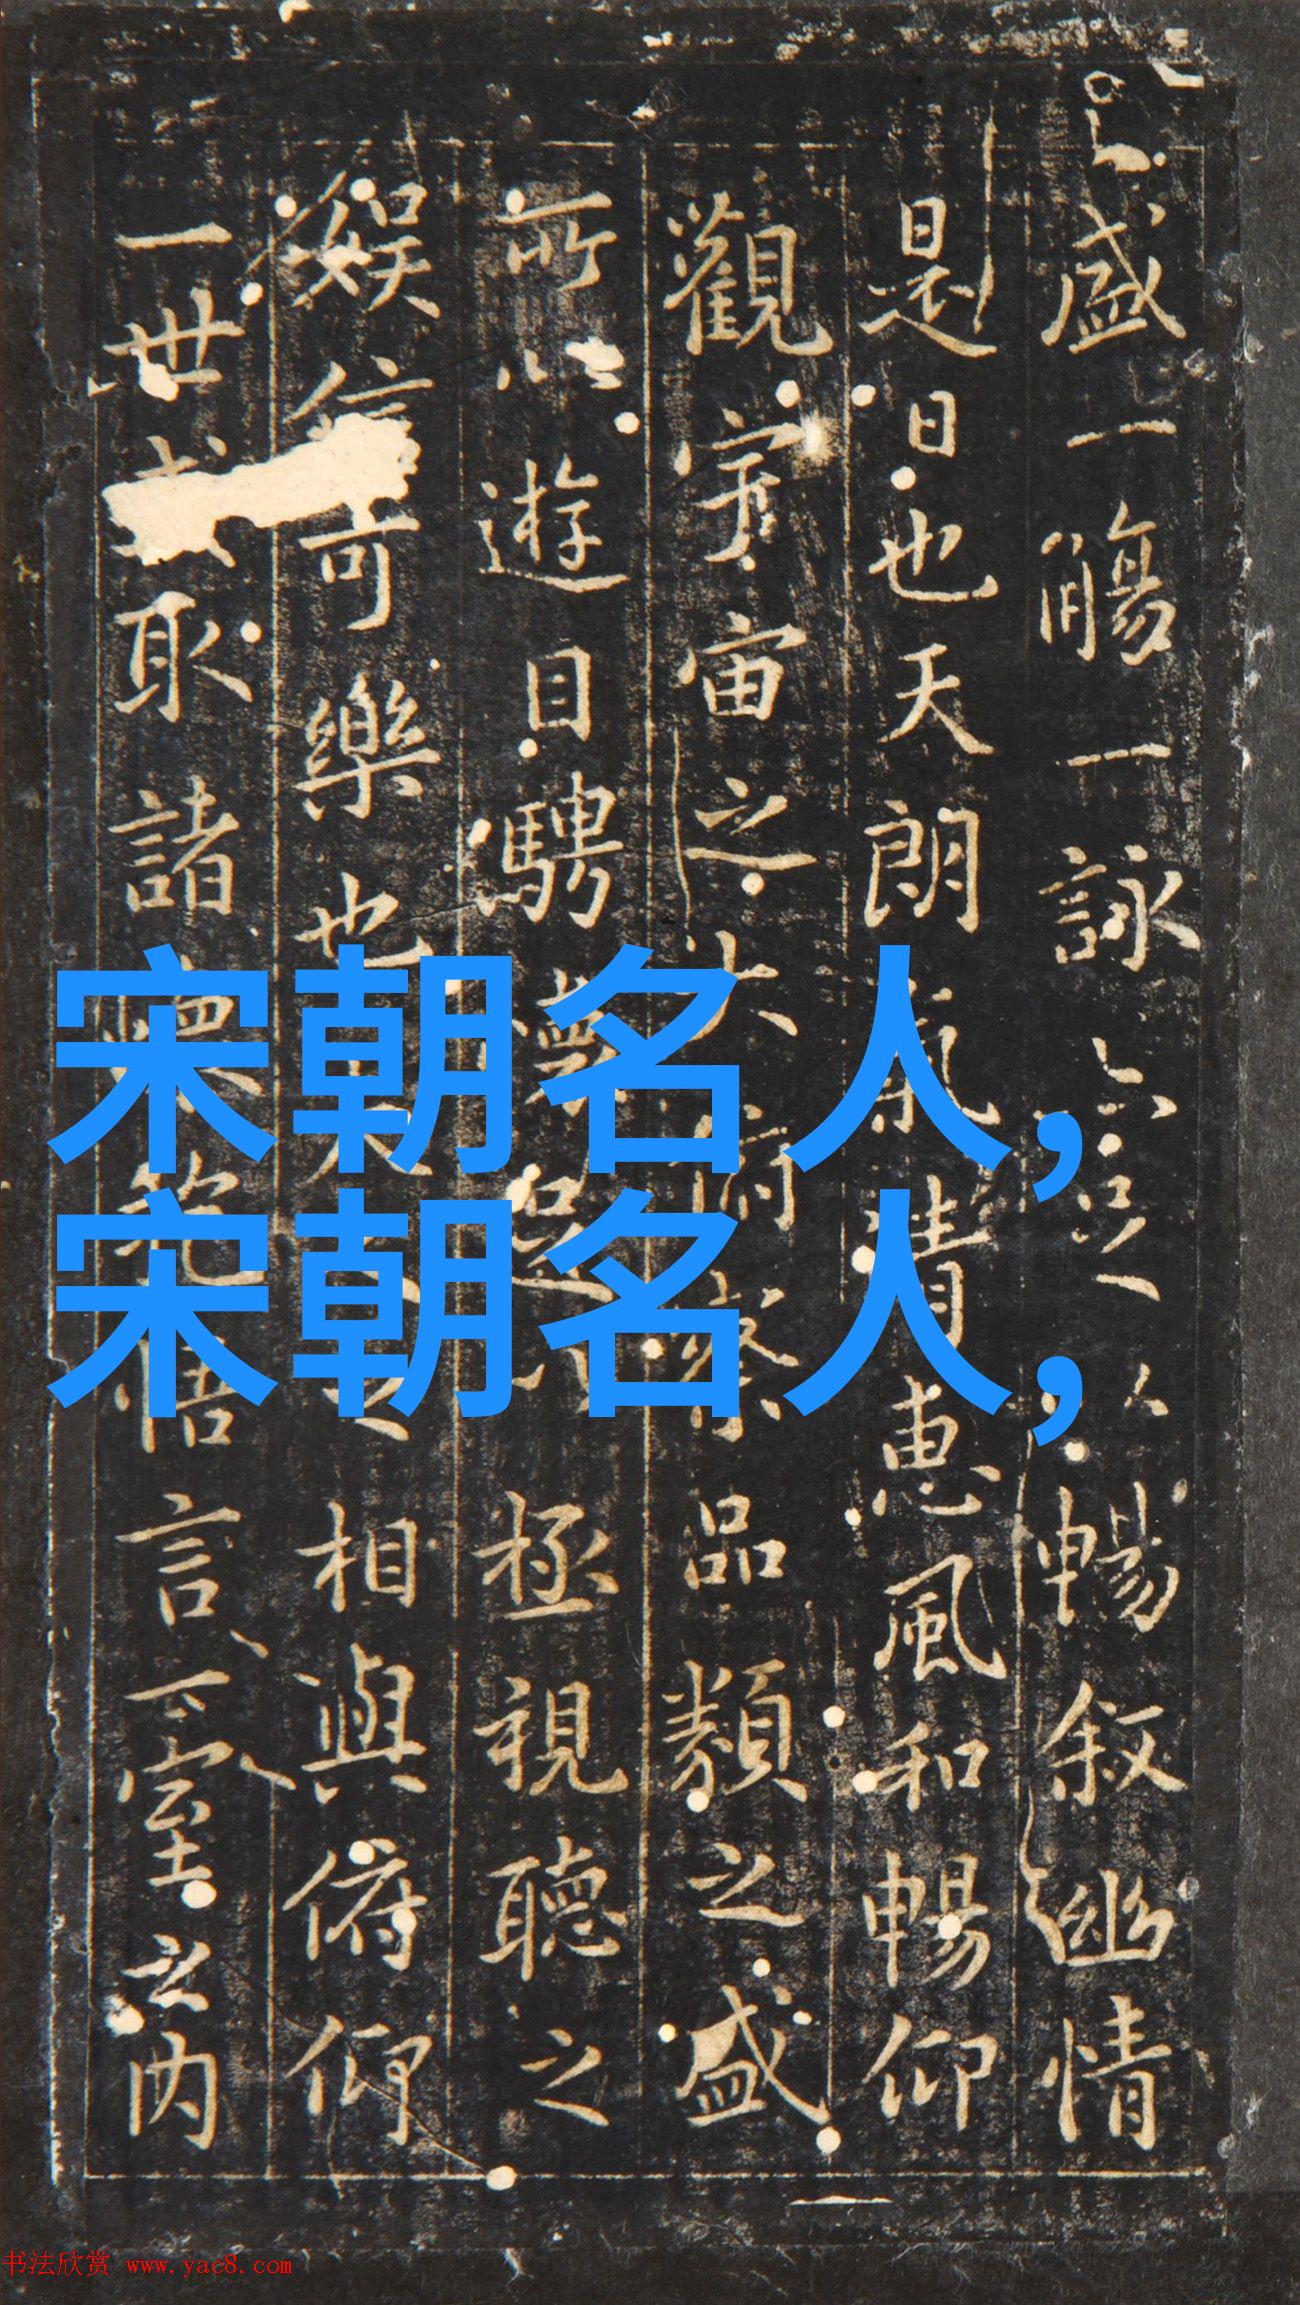 盛一觴一詠亦足以暢叙幽情
是日也天朗氣清惠風和暢仰
觀宇宙之大俯察品類之盛
所以遊目騁懷足以極視聽之
娱信可樂也夫人之相與俯仰
一世或取諸懷抱悟言一室之内
宋朝名人,
宋朝名人,
书法欣赏 www.yac8.com